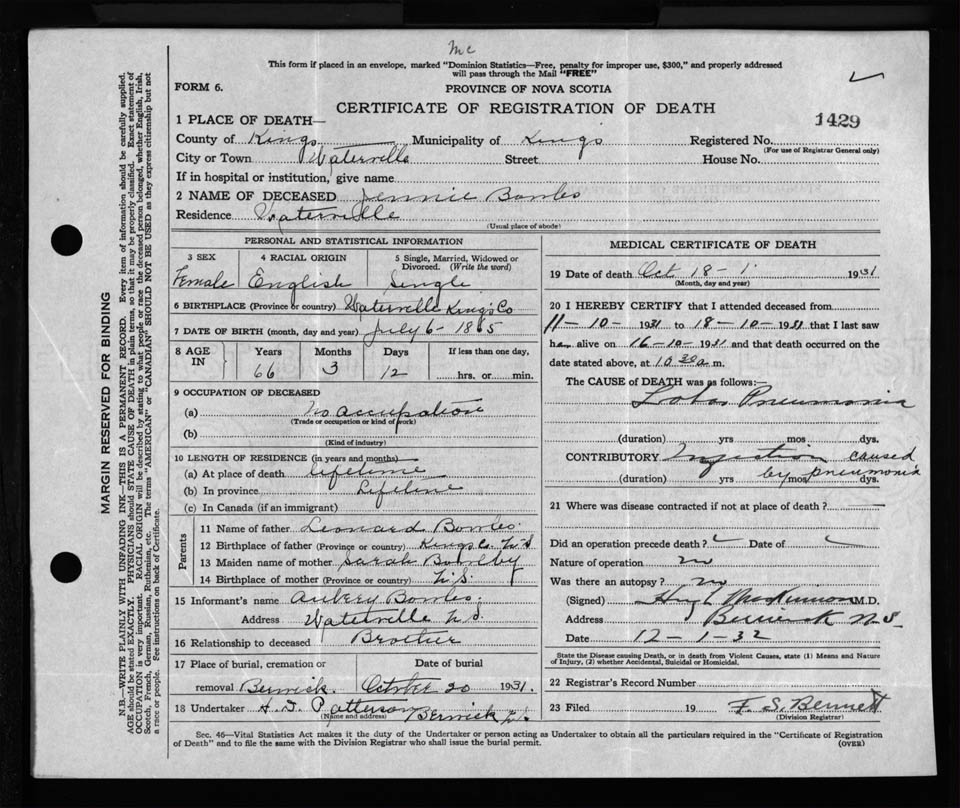 Mc
This form if placed in an envelope, marked "Dominion Statistics—Free, penalty for improper use, $300," and properly addressed
will pass through the Mail "FREE"
FORM 6.
PROVINCE OF NOVA SCOTIA
CERTIFICATE OF REGISTRATION OF DEATH
1429
1 PLACE OF DEATH—
County of Kings Municipality of Kings Registered No.
(For use of Registrar General only)
City or Town Waterville Street House No.
If in hospital or institution, give name
2 NAME OF DECEASED Jennie Bowles
Residence Waterville
(Usual place of abode)
PERSONAL AND STATISTICAL INFORMATION
3 SEX 4 RACIAL ORIGIN 5 Single, Married, Widowed or Divorced. (Write the word)
Female English Single
6 BIRTHPLACE (Province or country) Waterville Kings Co
7 DATE OF BIRTH (month, day and year) July 6 - 1865
8 AGE IN Years Months Days If less than one day,
66 3 12 hrs. or min.
9 OCCUPATION OF DECEASED
(a) No occupation
(Trade or occupation or kind of work)
(b)
(Kind of industry)
10 LENGTH OF RESIDENCE (in years and months)
(a) At place of death lifetime
(b) In province Lifetime
(c) In Canada (if an immigrant)
Parents
11 Name of father Leonard Bowles.
12 Birthplace of father (Province or country) Kings Co. N.S
13 Maiden name of mother Sarah
14 Birthplace of mother (Province or country) N.S.
15 Informant's name Aubery Bowles.
Address Waterville N.S.
16 Relationship to deceased Brother
17 Place of burial, cremation or Date of burial
removal Berwick. October 20 1931.
18 Undertaker H. D. Patterson Berwick N.S.
(Name and address)
MEDICAL CERTIFICATE OF DEATH
19 Date of death Oct 18 - 1931
(Month, day and year)
20 I HEREBY CERTIFY that I attended deceased from
11-10-1931 to 18-10-1931 that I last saw
her alive on 16-10-1931 and that death occurred on the
date stated above, at 10 30 a m.
The CAUSE of DEATH was as follows:—
Lobar Pneumonia
(duration) yrs mos dys.
CONTRIBUTORY Infection caused
by pneumonia
(duration) yrs/mos dys.
21 Where was disease contracted if not at place of death?
Did an operation precede death? Date of
Nature of operation no
Was there an autopsy? no
(Signed) Hugh MacKinnon M.D.
Address Berwick N.S.
Date 12-1-32
State the Disease causing Death, or in death from Violent Causes, state (1) Means and Nature
of Injury, (2) whether Accidental, Suicidal or Homicidal.
22 Registrar's Record Number
23 Filed 19 F. S. Bennett
(Division Registrar)
Sec. 46—Vital Statistics Act makes it the duty of the Undertaker or person acting as Undertaker to obtain all the particulars required in the "Certificate of Registration
of Death" and to file the same with the Division Registrar who shall issue the burial permit.
(OVER)
MARGIN RESERVED FOR BINDING
N.B.—WRITE PLAINLY WITH UNFADING INK—THIS IS A PERMANENT RECORD. Every item of information should be carefully supplied.
AGE should be stated EXACTLY. PHYSICIANS should STATE CAUSE OF DEATH in plain terms, so that it may be properly classified. Exact statement of
OCCUPATION is very important. RACIAL ORIGIN will be described by stating to what people or race the deceased person belonged, whether English, Irish,
Scotch, French, German, Russian, Ruthenian, etc. The terms "AMERICAN" or "CANADIAN" SHOULD NOT BE USED as they express citizenship but not
a race or people. See instructions on back of Certificate.